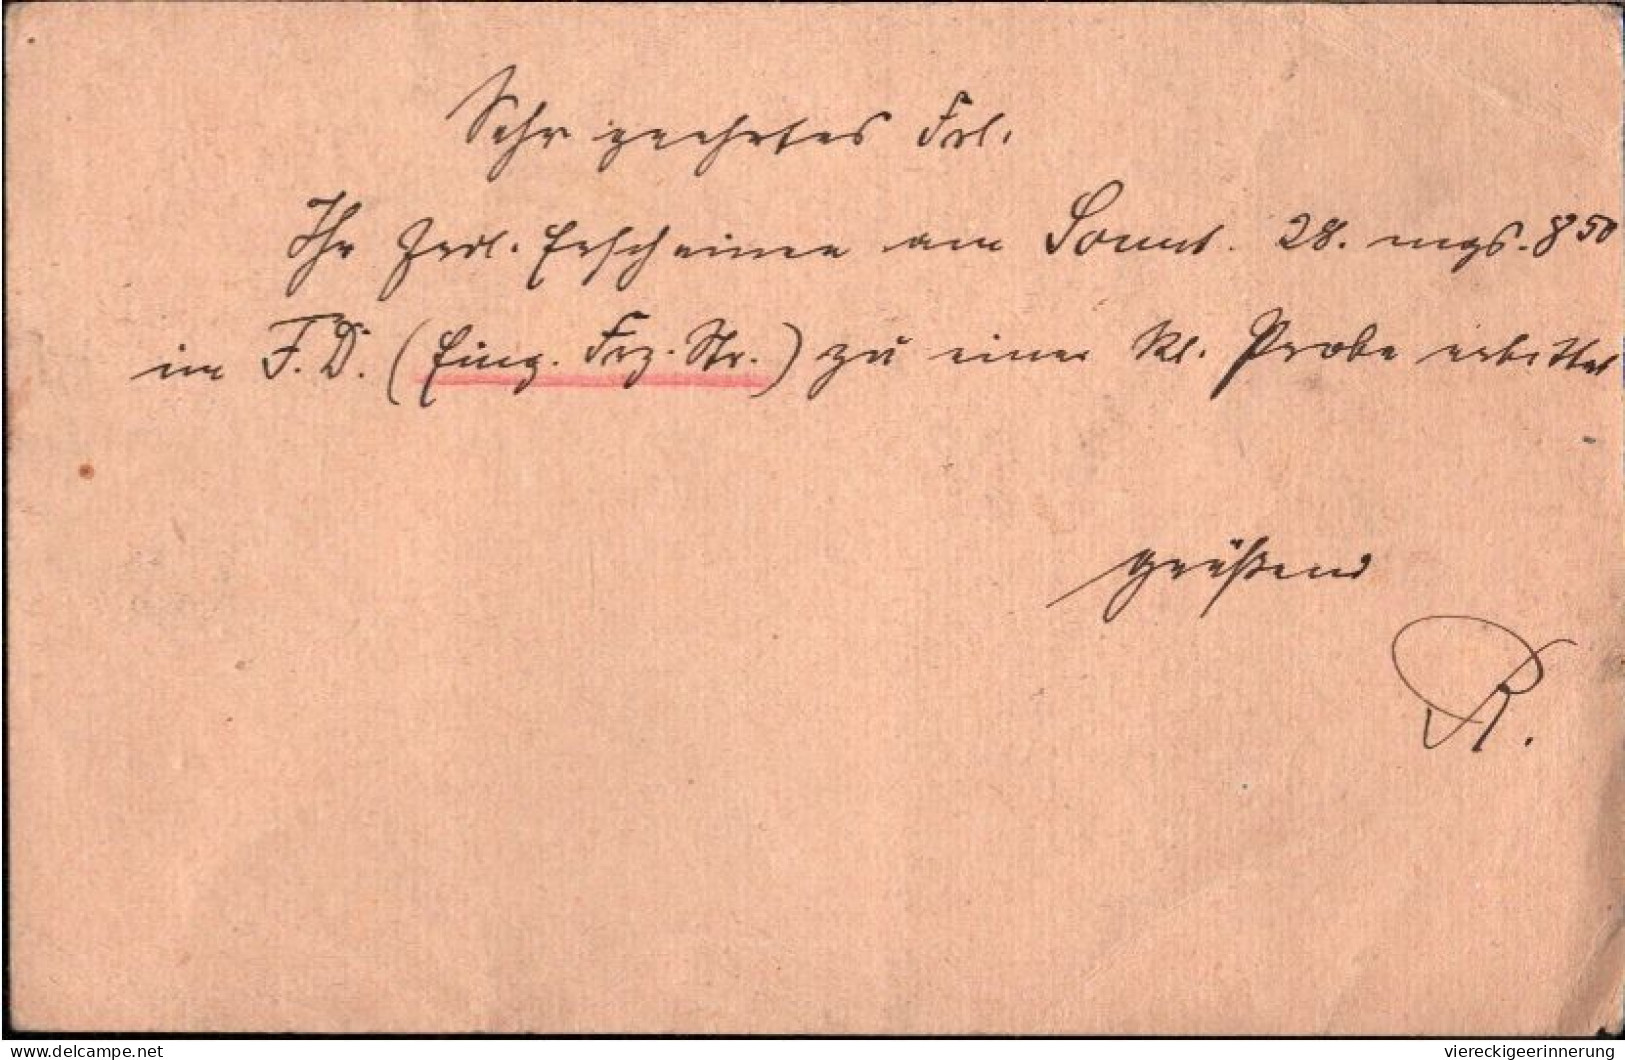 Sehr geehrtes Frl.
Ihr frdl. Erscheinen am Sonnt. 28. mgs. 8 50
im F. D. (Eing. Frz. Str.) zu einer kl. Probe erbittet
grüßend
R.
www.delcampe.net
viereckigeerinnerung